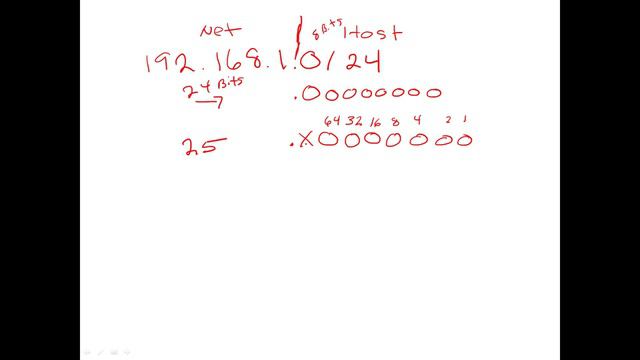 Net 8 Bits Host
192.168.1.0/24
24 Bits .00000000
64 32 16 8 4 2 1
25 .X0000000